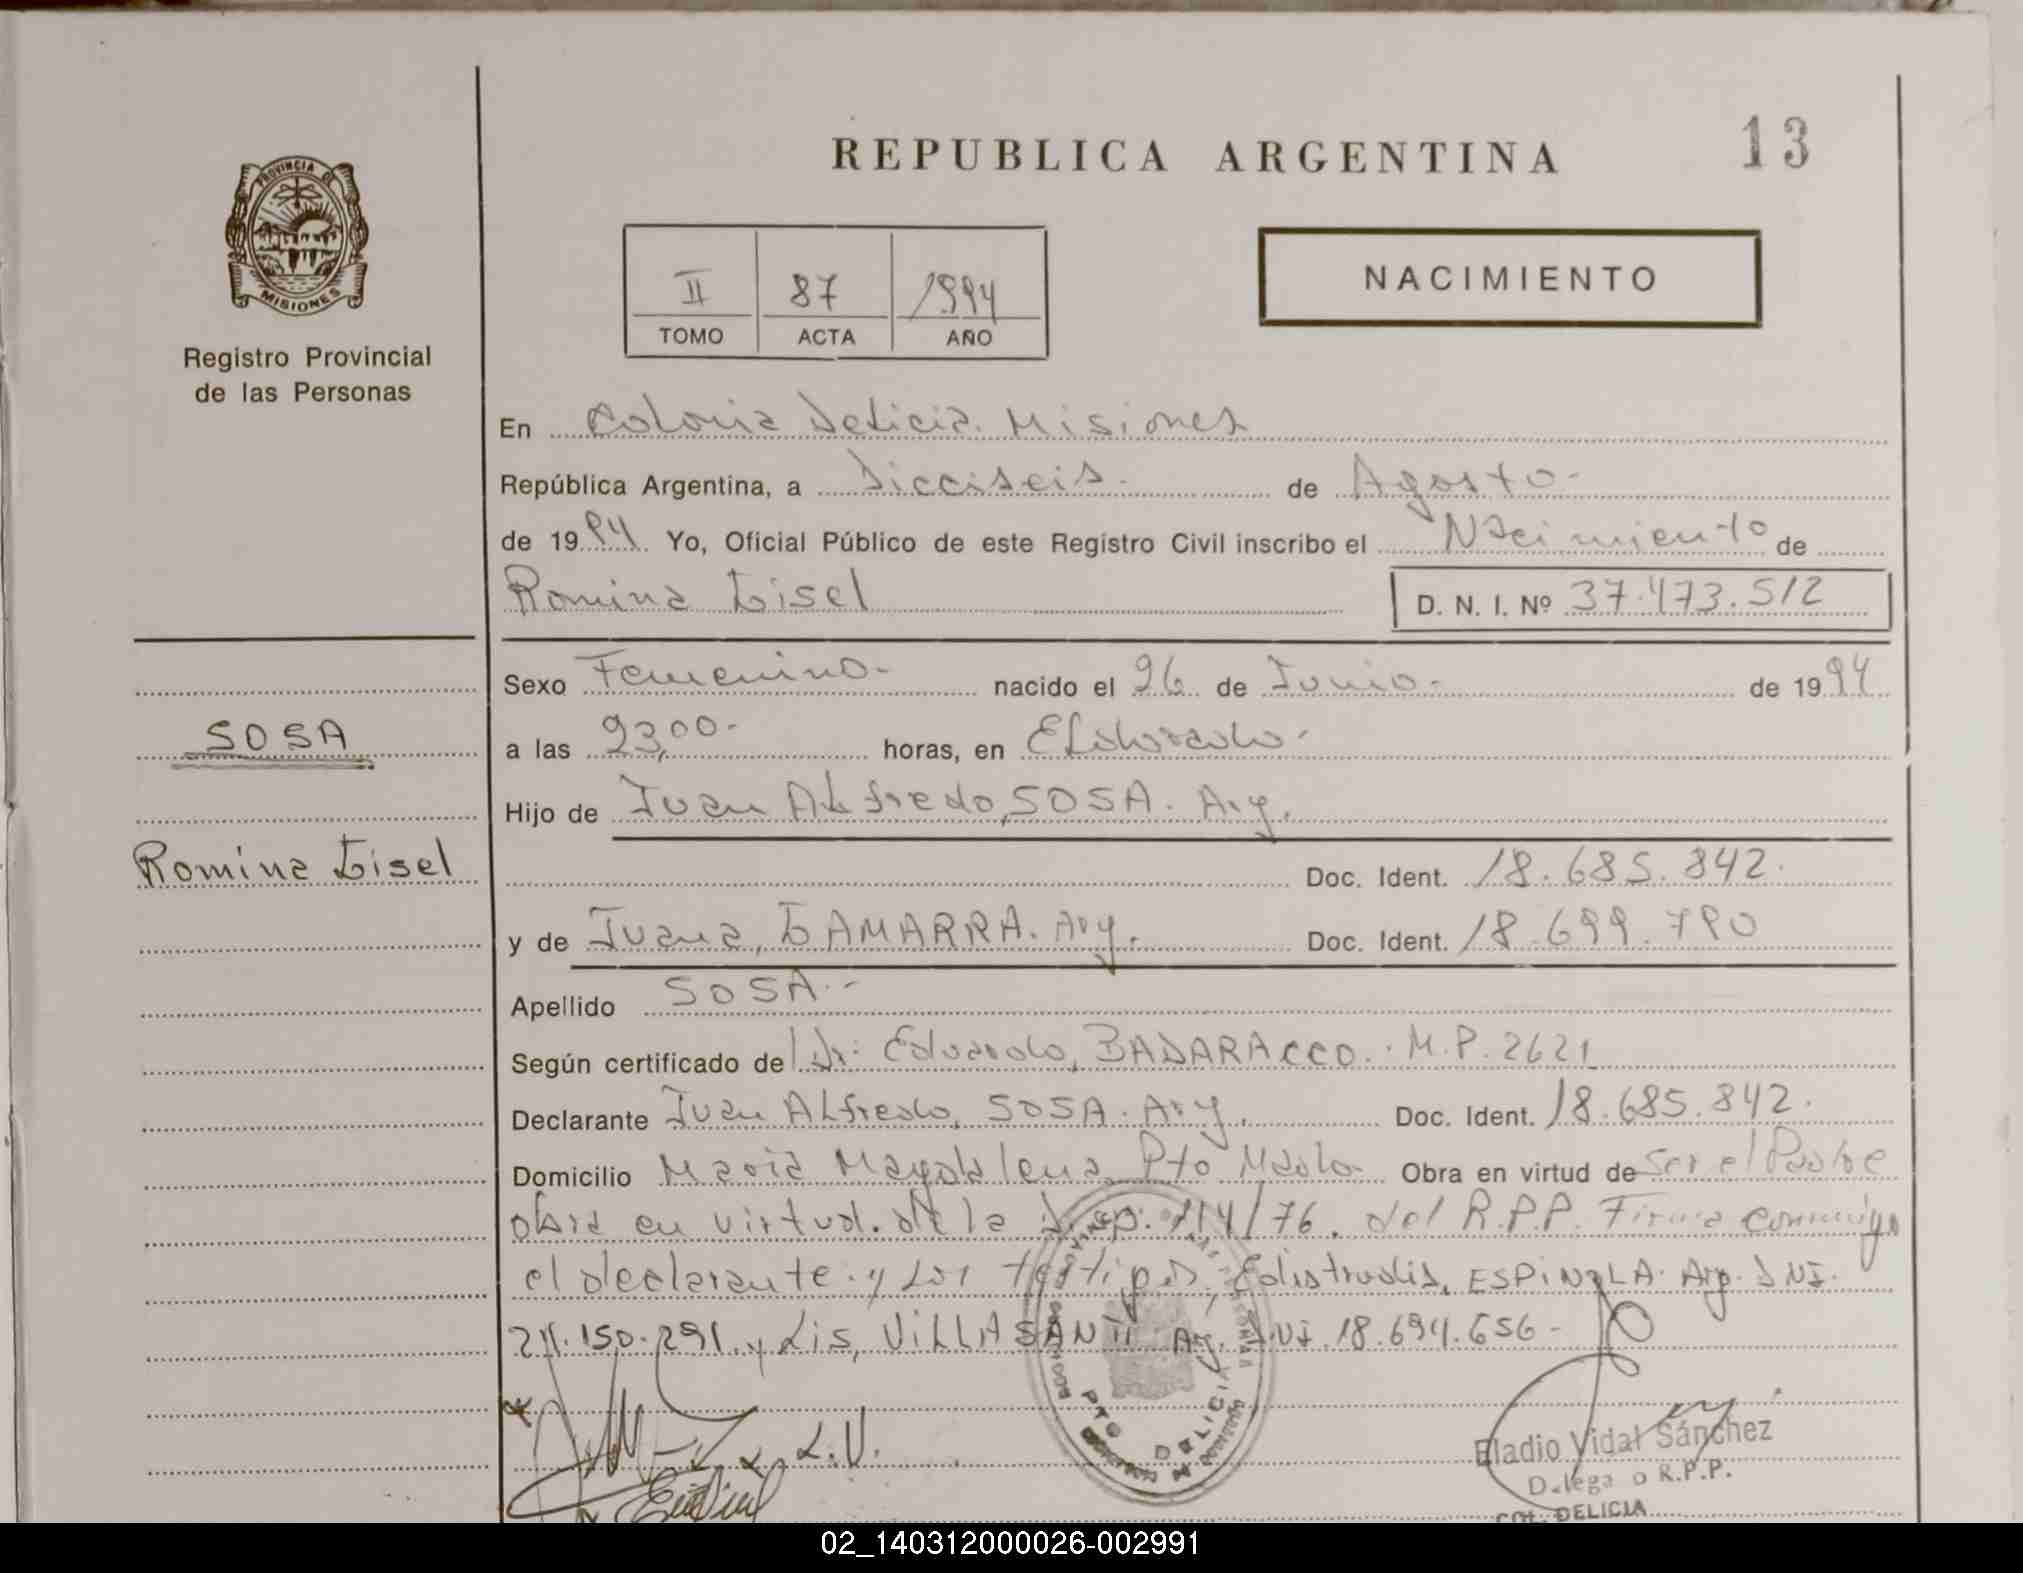 REPUBLICA ARGENTINA
13
PROVINCIA DE
MISIONES
Registro Provincial
de las Personas
II 87 1994
TOMO ACTA AÑO
NACIMIENTO
En Colonia Delicia. Misiones
República Argentina, a Dieciseis. de Agosto-
de 1994 Yo, Oficial Público de este Registro Civil inscribo el Nacimiento de
Romina Lisel D. N. I. Nº 37.473.512
Sexo Femenino- nacido el 26 de Junio- de 1994
SOSA
a las 23,00- horas, en Eldorado-
Hijo de Juan Alfredo, SOSA. Arg.
Romina Lisel
Doc. Ident. 18.685.842.
y de Juana, GAMARRA. Arg. Doc. Ident. 18.699.790
Apellido SOSA.-
Según certificado de Dr: Eduardo, BADARACCO. M.P. 2621
Declarante Juan Alfredo, SOSA. Arg. Doc. Ident. 18.685.842.
Domicilio Maria Magdalena Pto Mado- Obra en virtud de ser el Padre
obra en virtud. de la Disp. 114/76. del R.P.P. Firma conmigo
el declarante. y los testigos, Edistrudis, ESPINOLA. Arg. DNI.
24.150.291. y Lis, VILLASANTI Arg. DNI. 18.694.656-
L.V.
PTO DELICIA
Eladio Vidal Sánchez
Delegado R.P.P.
COL. DELICIA
02_140312000026-002991